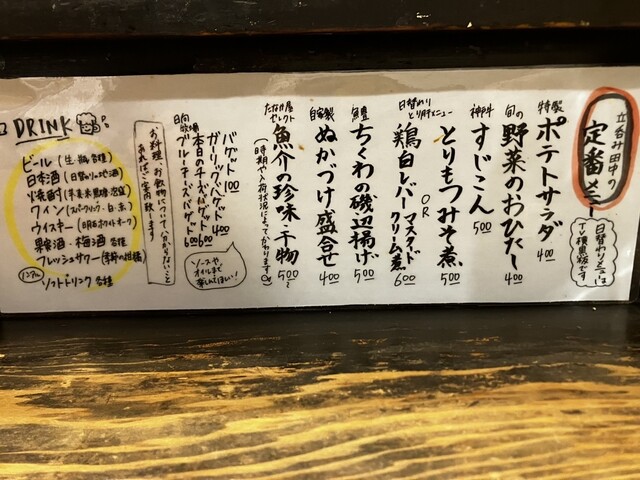 立呑み田中の
定番メニュー
日替わりメニューは
TV横黒板です
特製
ポテトサラダ 400
旬の
野菜のおひたし 400
神戸
すじこん 500
日替わり
とり肝メニュー
とりもつみそ煮 500
OR
鶏白レバーマスタード
クリーム煮 600
魚豊
ちくわの磯辺揚げ 500
自家製
ぬかづけ盛合せ 400
たなか屋
セレクト
魚介の珍味・干物 500〜
(時期や入荷状況によってかわります)
バゲット 100
ガーリックバゲット 400
本日のチーズバゲット 600
ブルーチーズバゲット 600
ソースや、
オイルまで
楽しんでほしい!
お料理、お飲物について、分からないこと
あればご案内致します
DRINK
ビール(生・瓶 各種)
日本酒(日替りの地酒)
焼酎(芋・麦・米・黒糖・泡盛)
ワイン(スパークリング・白・赤)
ウイスキー(明石ホワイトオーク)
果実酒・梅酒 各種
フレッシュサワー(季節の柑橘)
ノンアル
ソフトドリンク 各種